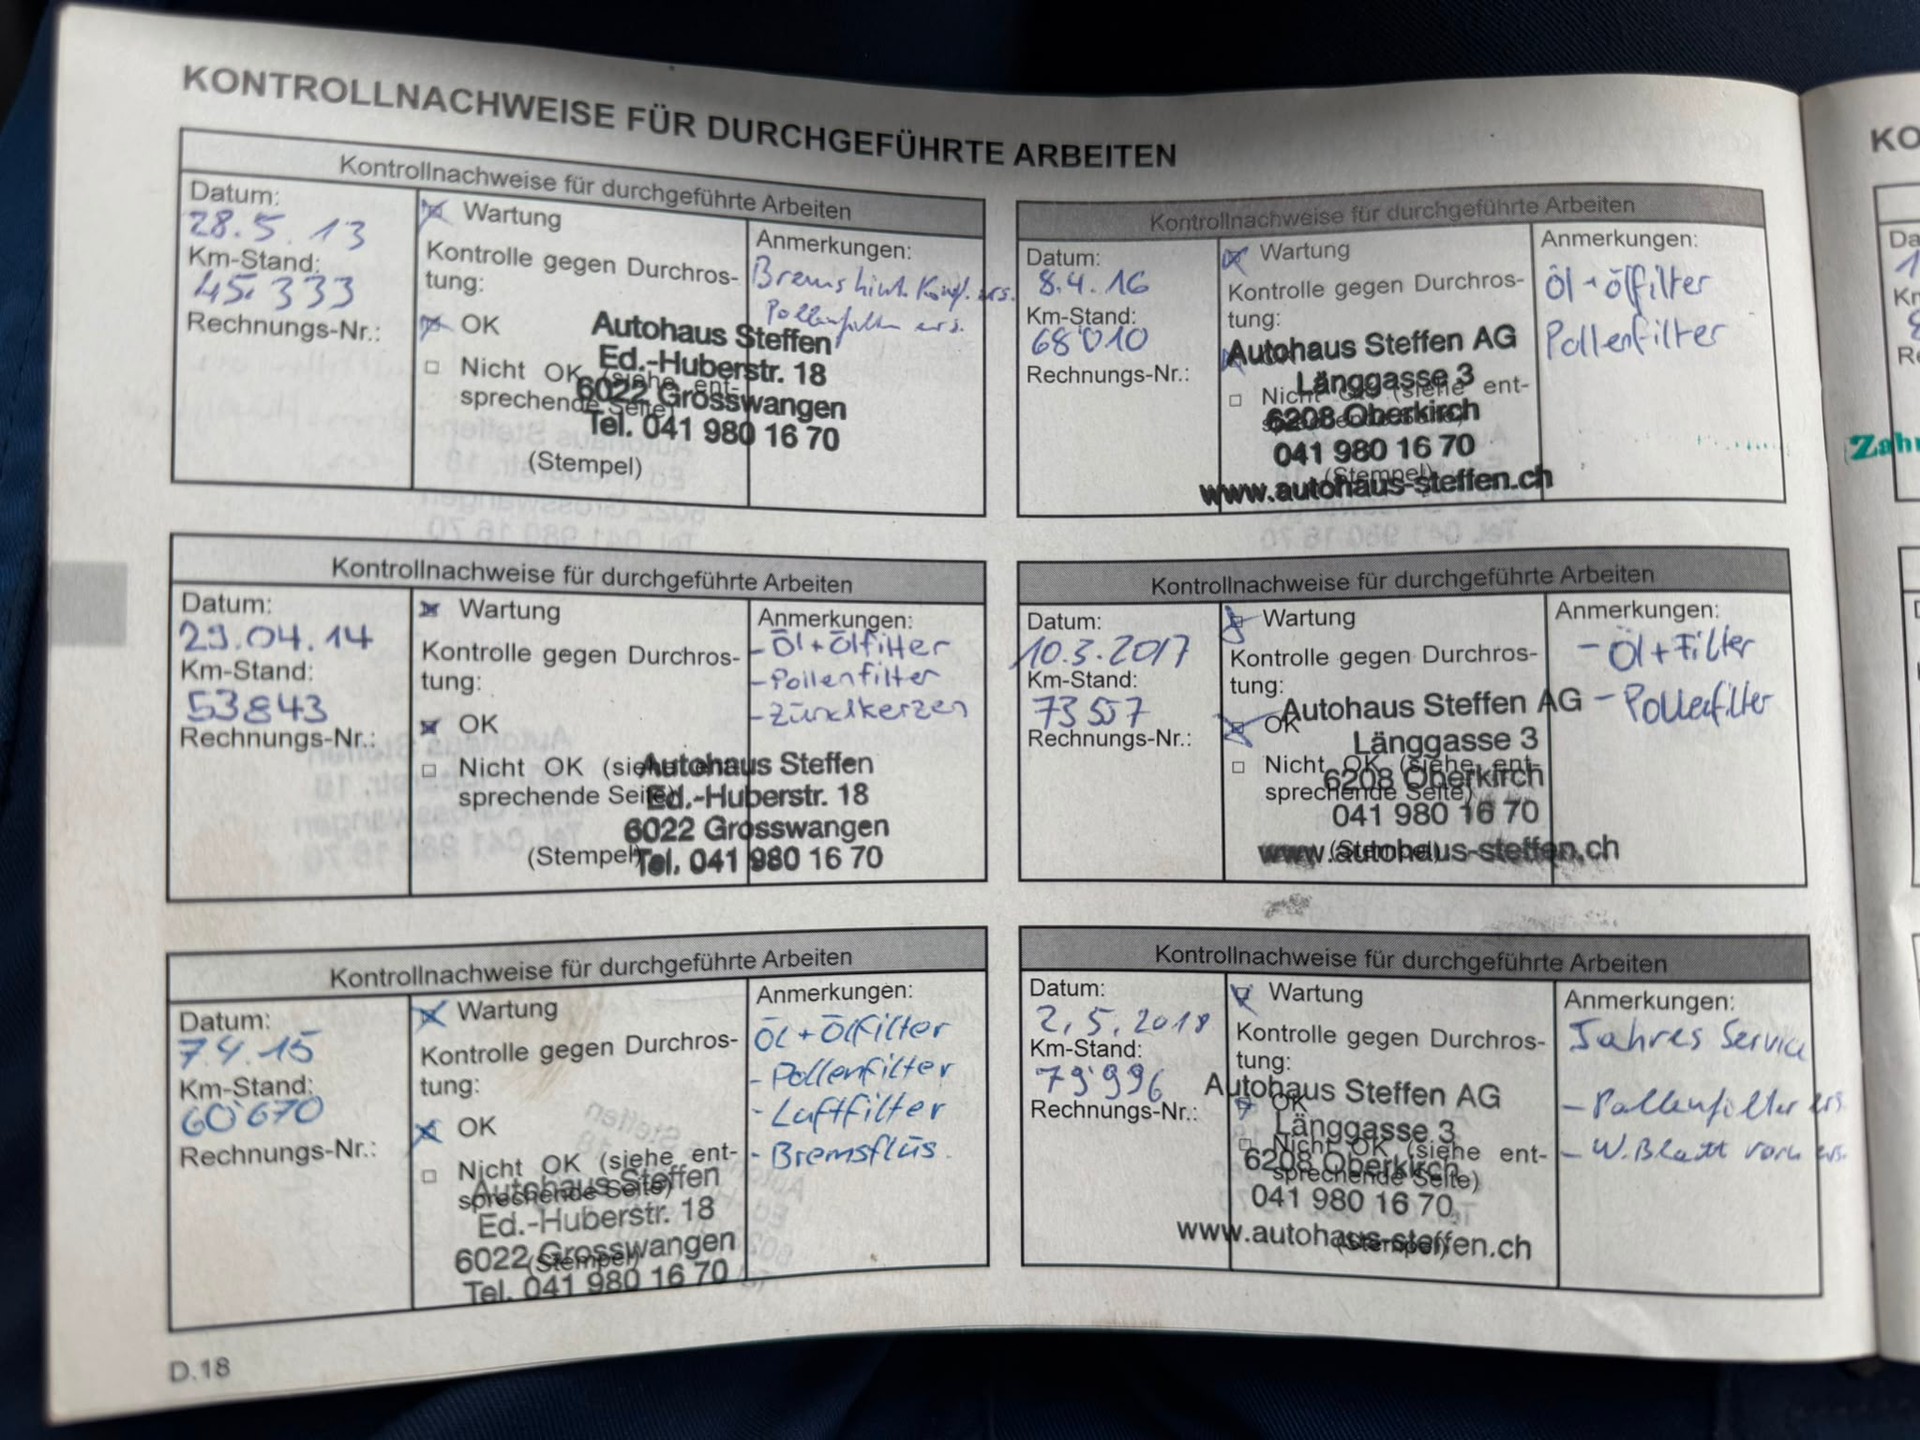 KONTROLLNACHWEISE FÜR DURCHGEFÜHRTE ARBEITEN
Kontrollnachweise für durchgeführte Arbeiten
Datum:
28.5.13
Km-Stand:
45.333
Rechnungs-Nr.:
Wartung
Kontrolle gegen Durchros-
tung:
OK
Nicht OK (siehe ent-
sprechende Seite)
(Stempel)
Autohaus Steffen
Ed.-Huberstr. 18
6022 Grosswangen
Tel. 041 980 16 70
Anmerkungen:
Brems hint. ers.
Pollenfilter ers.
Kontrollnachweise für durchgeführte Arbeiten
Datum:
29.04.14
Km-Stand:
53843
Rechnungs-Nr.:
Wartung
Kontrolle gegen Durchros-
tung:
OK
Nicht OK (siehe ent-
sprechende Seite)
(Stempel)
Autohaus Steffen
Ed.-Huberstr. 18
6022 Grosswangen
Tel. 041 980 16 70
Anmerkungen:
- Öl + Ölfilter
- Pollenfilter
- Zündkerzen
Kontrollnachweise für durchgeführte Arbeiten
Datum:
7.4.15
Km-Stand:
60'670
Rechnungs-Nr.:
Wartung
Kontrolle gegen Durchros-
tung:
OK
Nicht OK (siehe ent-
sprechende Seite)
(Stempel)
Autohaus Steffen
Ed.-Huberstr. 18
6022 Grosswangen
Tel. 041 980 16 70
Anmerkungen:
Öl + Ölfilter
- Pollenfilter
- Luftfilter
- Bremsflüs.
Kontrollnachweise für durchgeführte Arbeiten
Datum:
8.4.16
Km-Stand:
68'010
Rechnungs-Nr.:
Wartung
Kontrolle gegen Durchros-
tung:
Nicht OK (siehe ent-
sprechende Seite)
(Stempel)
Autohaus Steffen AG
Länggasse 3
6208 Oberkirch
041 980 16 70
www.autohaus-steffen.ch
Anmerkungen:
Öl + Ölfilter
Pollenfilter
Kontrollnachweise für durchgeführte Arbeiten
Datum:
10.3.2017
Km-Stand:
73557
Rechnungs-Nr.:
Wartung
Kontrolle gegen Durchros-
tung:
OK
Nicht OK (siehe ent-
sprechende Seite)
(Stempel)
Autohaus Steffen AG
Länggasse 3
6208 Oberkirch
041 980 16 70
www.autohaus-steffen.ch
Anmerkungen:
- Öl + Filter
- Pollenfilter
Kontrollnachweise für durchgeführte Arbeiten
Datum:
2.5.2018
Km-Stand:
79'996
Rechnungs-Nr.:
Wartung
Kontrolle gegen Durchros-
tung:
OK
Nicht OK (siehe ent-
sprechende Seite)
(Stempel)
Autohaus Steffen AG
Länggasse 3
6208 Oberkirch
041 980 16 70
www.autohaus-steffen.ch
Anmerkungen:
Jahres Service
- Pollenfilter ers.
- W.Blatt vorn ers.
D.18
KO
Zahn